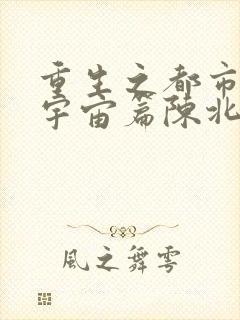 重生之都市
宇宙篇陳北
風之舞雩